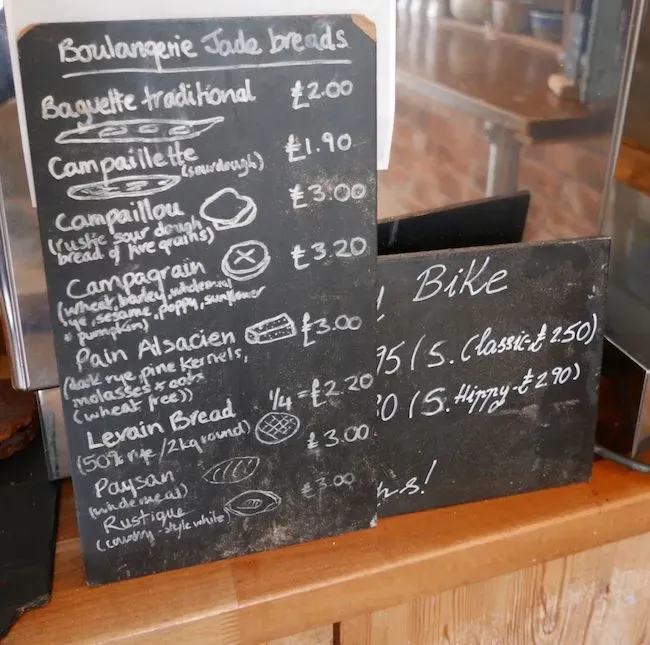 Boulangerie Jade breads
Baguette traditional £2.00
Campaillette (sourdough) £1.90
Campaillou £3.00
(rustic sour dough
bread of five grains)
Campagrain £3.20
(wheat, barley, wholemeal
rye, sesame, poppy, sunflower
+ pumpkin)
Pain Alsacien £3.00
(dark rye, pine kernels,
molasses + oats
(wheat free))
Levain Bread 1/4 = £2.20
(50% rye/2kg round)
Paysan £3.00
(wholemeal)
Rustique £3.00
(country-style white)
! BiKe
95 (S. Classic-£2.50)
0 (S. Hippy-£2.90)
s!